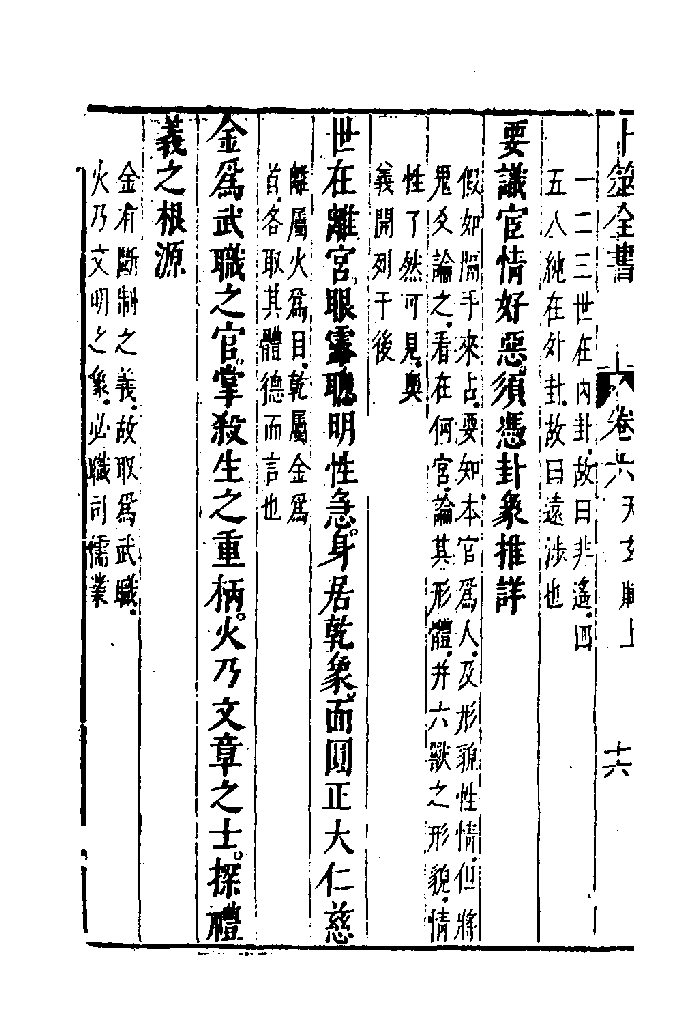 卜筮全書 卷六 天玄賦上 十六
一二三世在內卦故曰非遙四
五八純在外卦故曰遠涉也
要議官情好惡須憑卦象推詳
假如隔手來占要知本官爲人及形貌性情但將
鬼爻論之看在何宮論其形體幷六獸之形貌情
性了然可見奧
義開列于後
世在離宮眼露聰明性急身居乾象面圓正大仁慈
離屬火爲目乾屬金爲
首各取其體德而言也
金爲武職之官掌殺生之重柄火乃文章之士探禮
義之根源
金有斷制之義故取爲武職
火乃文明之象必職司儒業